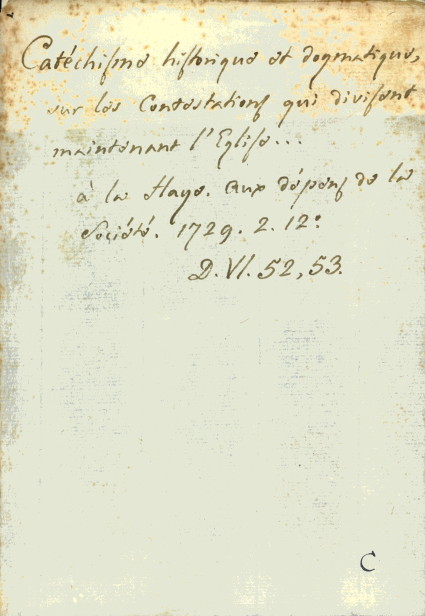 Catéchisme historique et dogmatique,
sur les Contestations qui divisent
maintenant l'Eglise...
à la Haye. Aux dépens de la
Société. 1729. 2. 12°
D. VI. 52, 53.
C